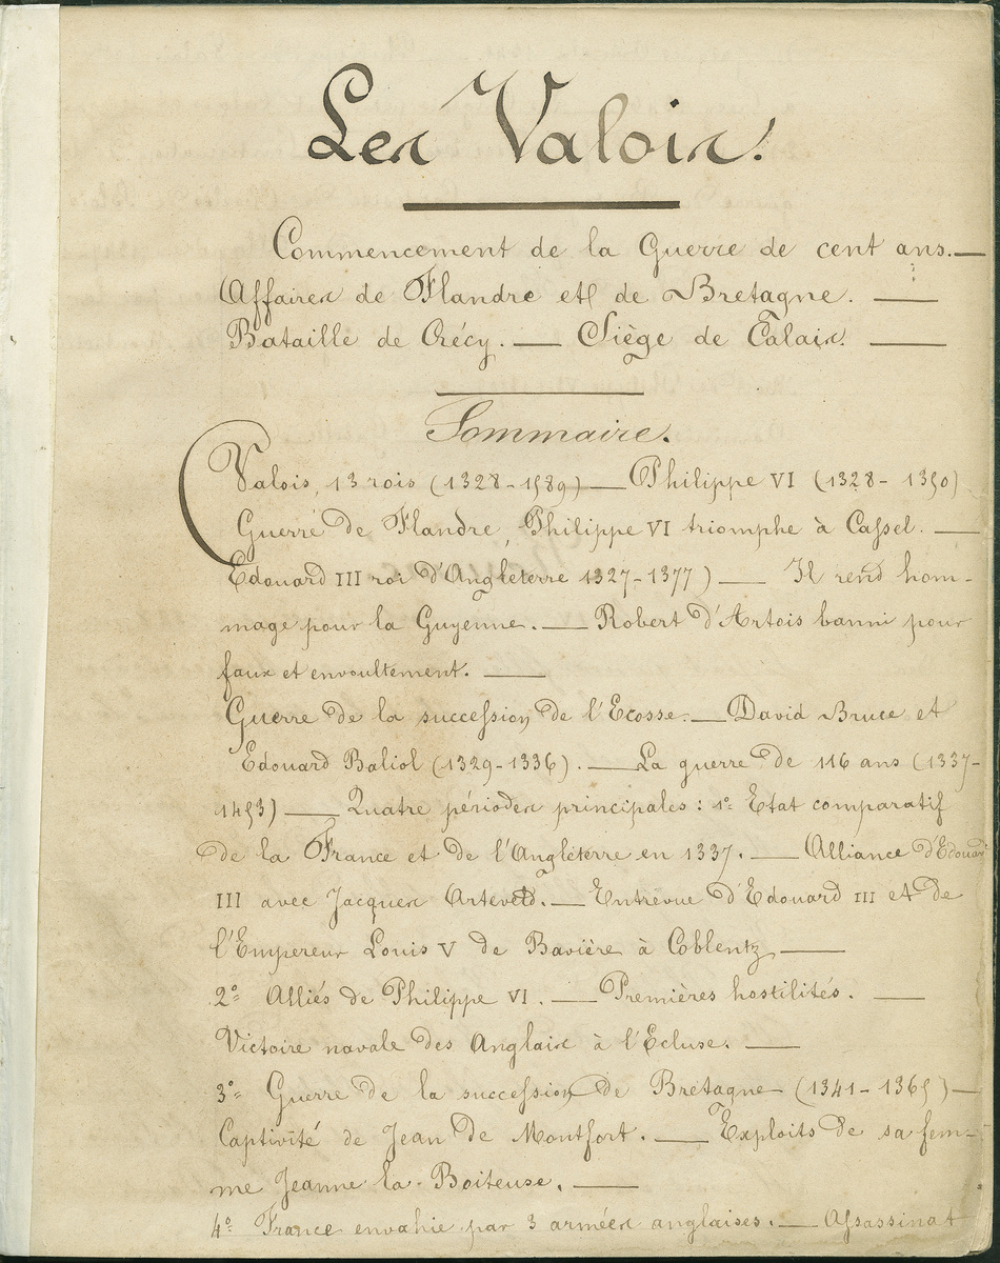 Les Valois.
Commencement de la Guerre de cent ans. —
Affaires de Flandre et de Bretagne. —
Bataille de Crécy. — Siège de Calais. —
Sommaire.
Valois, 13 rois (1328-1589) — Philippe VI (1328-1350)
Guerre de Flandre, Philippe VI triomphe à Cassel. —
Edouard III roi d'Angleterre 1327-1377) — Il rend hom-
mage pour la Guyenne. — Robert d'Artois banni pour
faux et envoultement. —
Guerre de la succession de l'Ecosse. — David Bruce et
Edouard Baliol (1329-1336). — La guerre de 116 ans (1337-
1453) — Quatre périodes principales : 1° Etat comparatif
de la France et de l'Angleterre en 1337. — Alliance d'Edouard
III avec Jacques Arteveld. — Entrevue d'Edouard III et de
l'Empereur Louis V de Bavière à Coblentz —
2° Alliés de Philippe VI. — Premières hostilités. —
Victoire navale des Anglais à l'Ecluse. —
3° Guerre de la succession de Bretagne (1341-1365) —
Captivité de Jean de Montfort. — Exploits de sa fem-
me Jeanne la Boiteuse. —
4° France envahie par 3 armées anglaises. — Assassinat